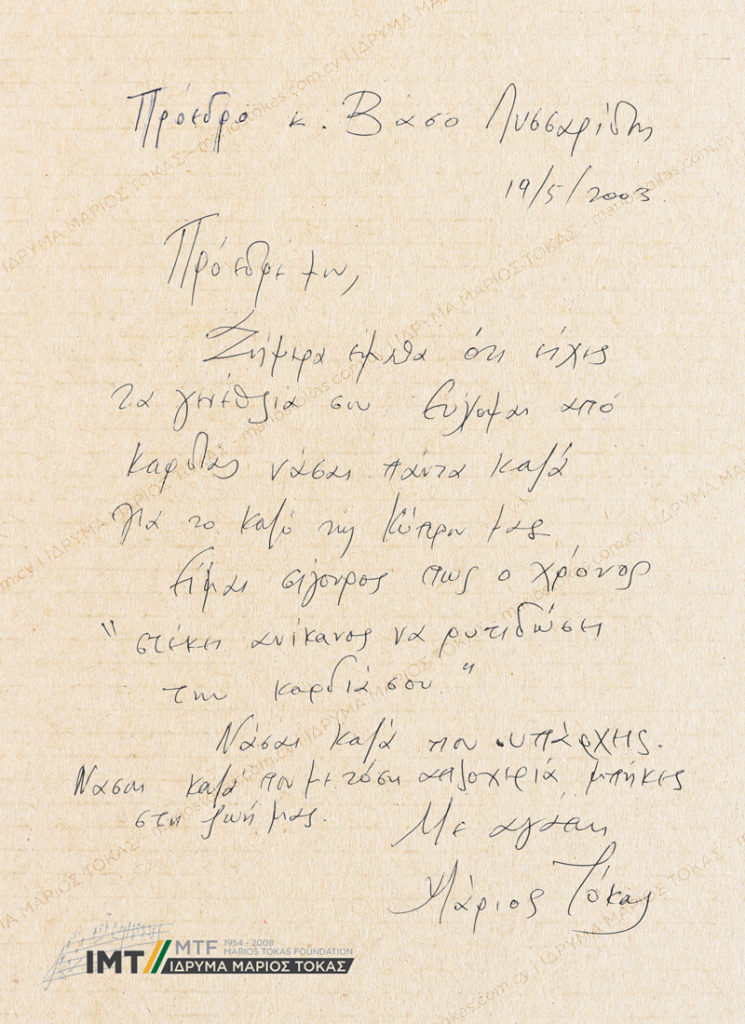 Πρόεδρο κ. Βάσο Λυσσαρίδη
19/5/2003
Πρόεδρέ μου,
Σήμερα έμαθα ότι είχες
τα γενέθλιά σου. Εύχομαι από
καρδιάς νάσαι πάντα καλά
για το καλό της Κύπρου μας
Είμαι σίγουρος πως ο χρόνος
"στέκει ανίκανος να ρυτιδώσει
την καρδιά σου"
Νάσαι καλά που υπάρχεις.
Νάσαι καλά που με τόση απλοχεριά, μπήκες
στη ζωή μας.
Με αγάπη
Μάριος Τόκας
IMT // MTF 1954 - 2008
MARIOS TOKAS FOUNDATION
ΙΔΡΥΜΑ ΜΑΡΙΟΣ ΤΟΚΑΣ
ΙΔΡΥΜΑ ΜΑΡΙΟΣ ΤΟΚΑΣ - mariostokas.com.cy